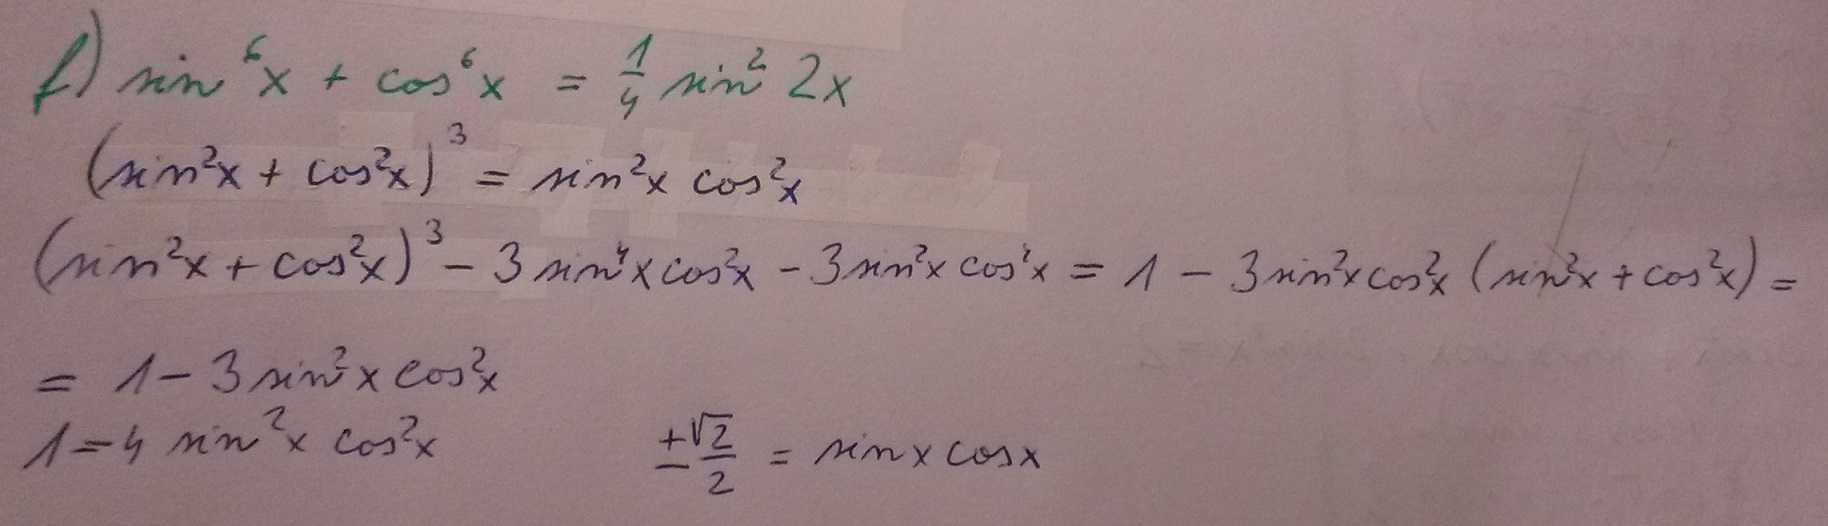 f) sin⁶x + cos⁶x = 1/4 sin² 2x
(sin²x + cos²x)³ = sin²x cos²x
(sin²x + cos²x)³ - 3 sin⁴x cos²x - 3 sin²x cos⁴x = 1 - 3 sin²x cos²x (sin²x + cos²x) =
= 1 - 3 sin²x cos²x
1 = 4 sin²x cos²x ±√2/2 = sin x cos x